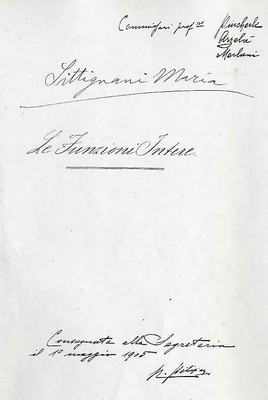 Commissari prof.ri Pincherle
Arzelà
Sittignani Maria
Le Funzioni Intere.
Consegnata alla Segreteria
il 1º maggio 1905